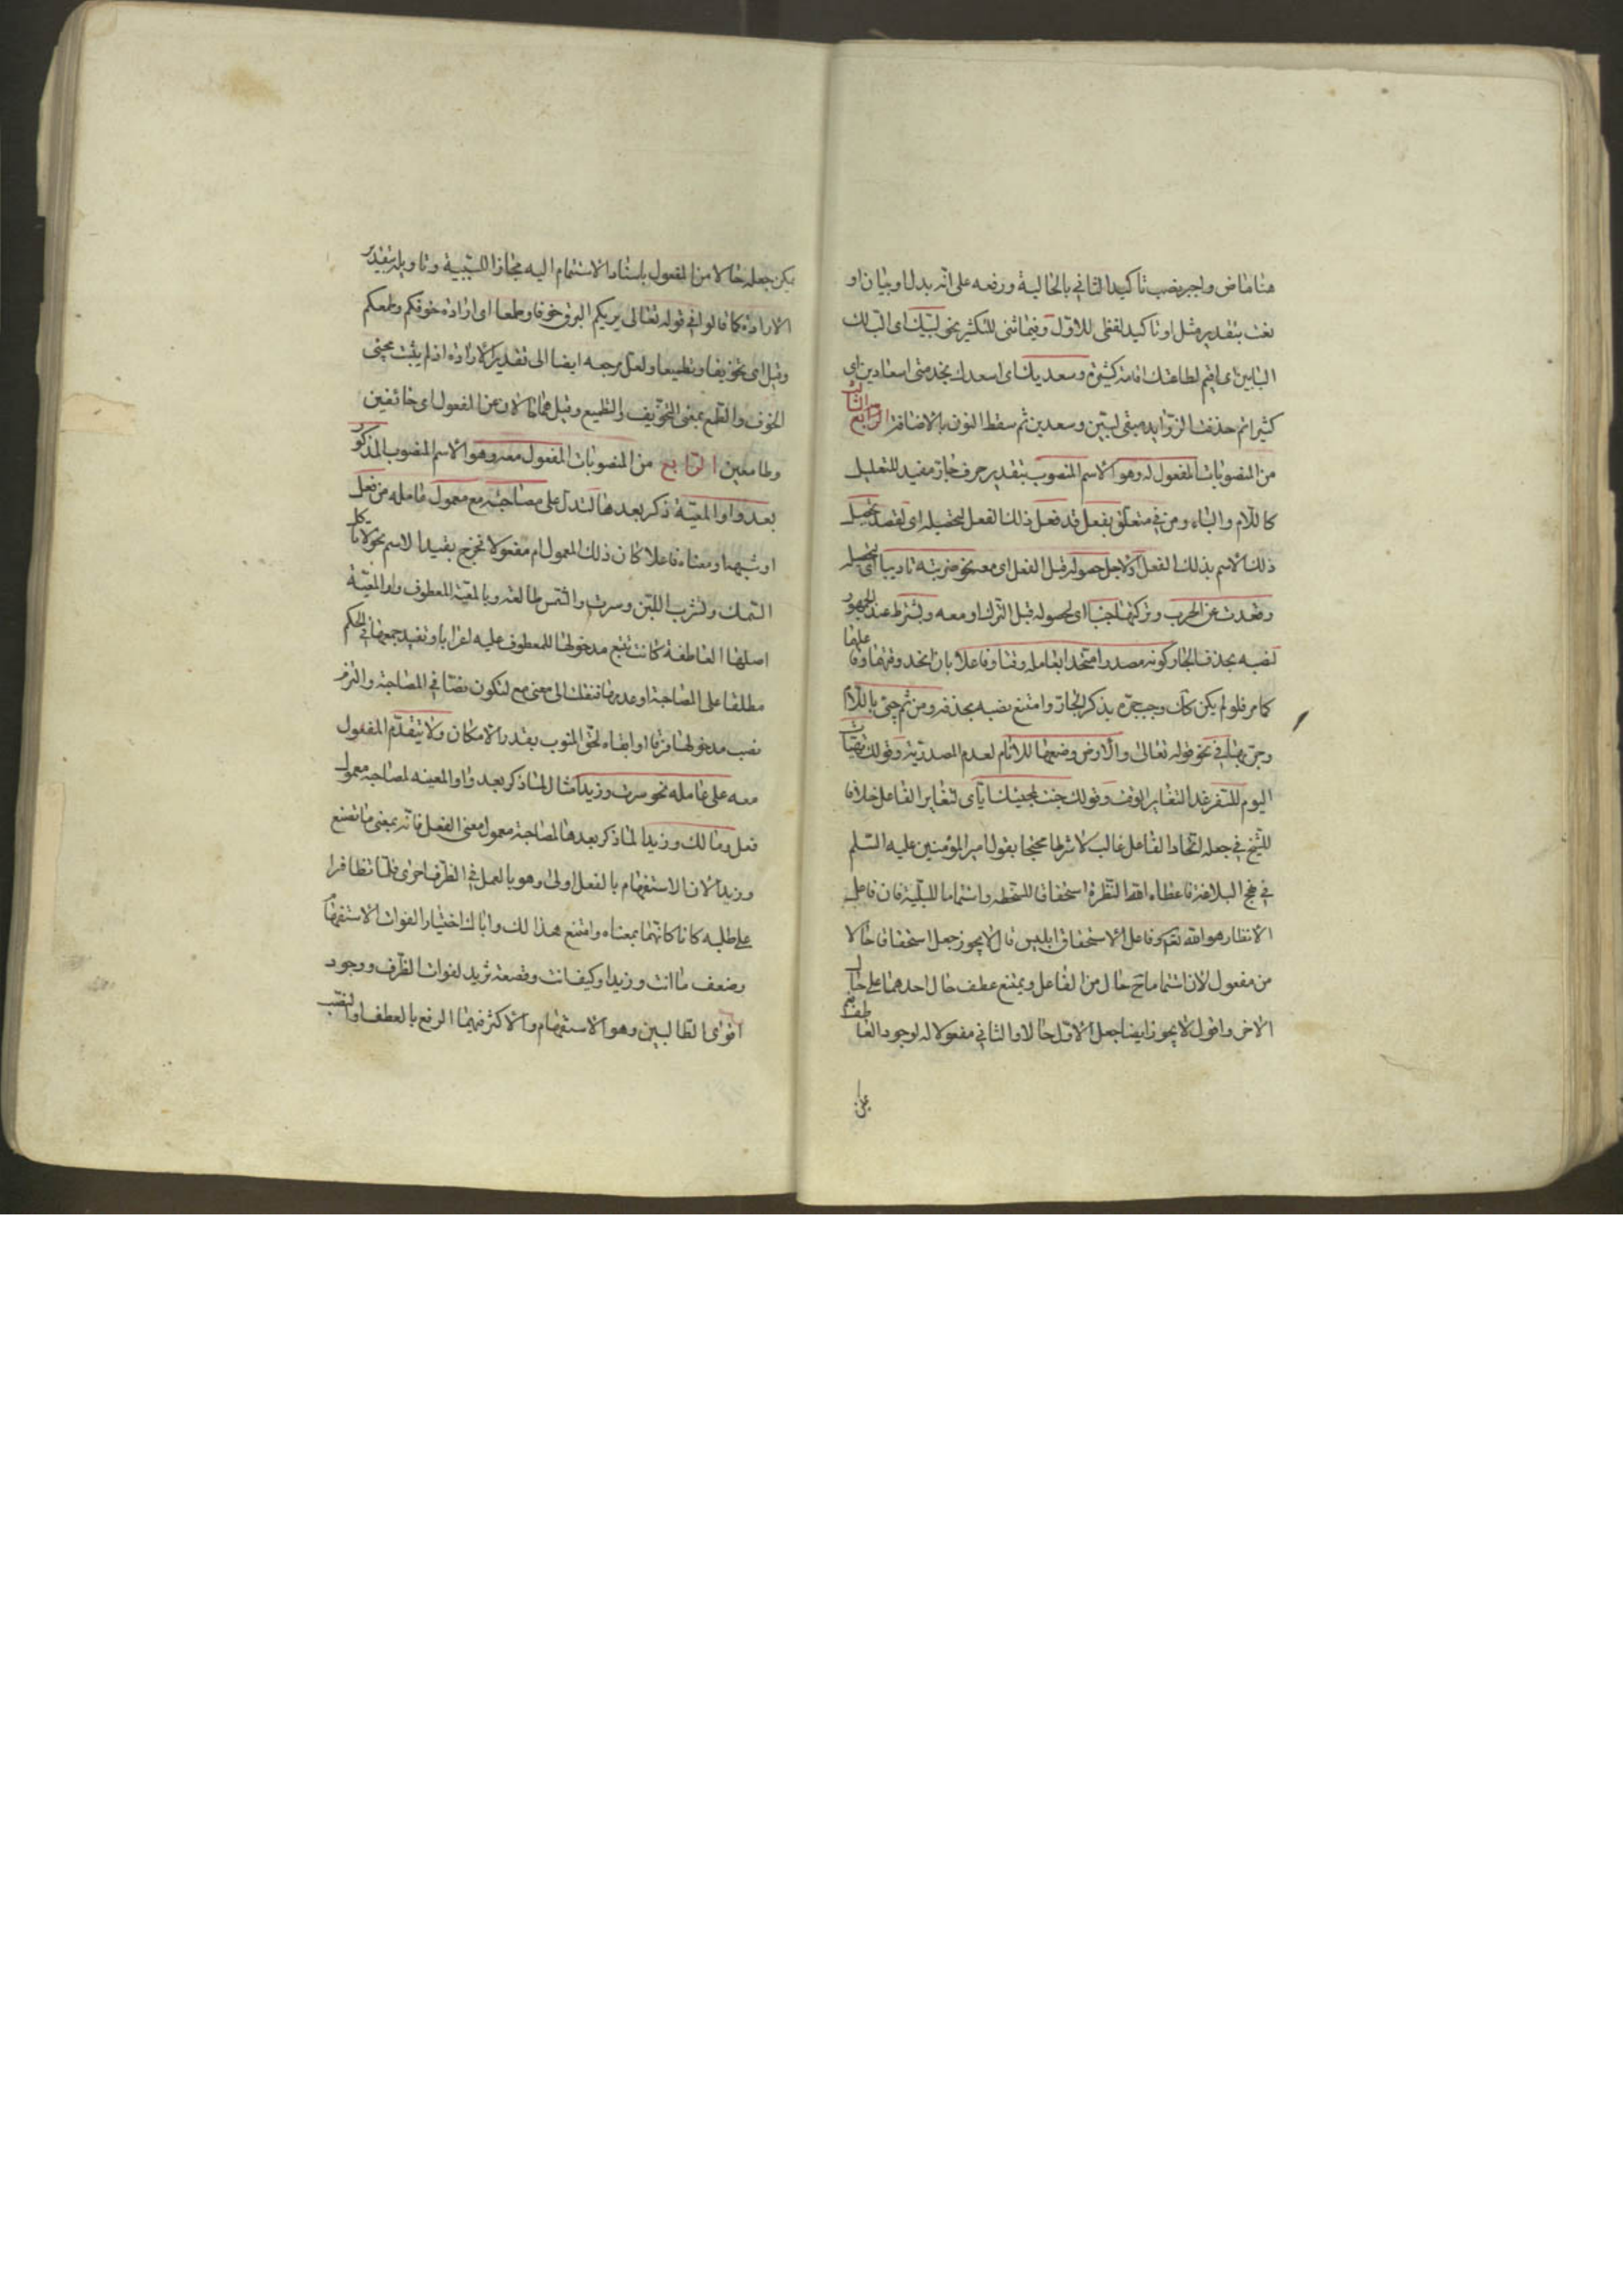 هنا ماض واجر بضب تاكيدا الثاني بالحالية ورفعه على انه بدل او بيان او
نعت بتقدير مثل او تاكيد لفظى للاول وفيما ثنى للتكثير نحو لبيك اى الب لك
البابين اى اقيم لطاعتك اقامة كثيرة وسعديك اى اسعدك بخدمتى اسعادين اى
كثيرا ثم حذفت الزوايد فبقى لبين وسعدين ثم سقط النون بالاضافة الثالث الرابع
من المنصوبات المفعول له وهو الاسم المنصوب بتقدير حرف جار مفيد للتعليل
كاللام والباء ومن في متعلق بفعل قد فعل ذلك الفعل لتحصيله اى لقصد تحصيل
ذلك الاسم بذلك الفعل او لاجل حصوله قبل الفعل اى معه نحو ضربته تاديبا اى لتحصيله
وقعدت عن الحرب وتركتها جبنا اى لحصوله قبل الترك او معه ويشترط عند الجمهور
لنصبه بحذف الجار كونه مصدرا متحدا بعامله وقتا وفاعلا بان اتحد وقتهما وفاعلهما
كما مر فلو لم يكن كك وجب جره بذكر الجار وامتنع نصبه بحذفه ومن ثم جئ باللام
وجئ بها في نحو قوله تعالى والارض وضعها للانام لعدم المصدرية وقولك تهيأت
اليوم للسفر غدا لتغاير الوقت وقولك جئت لمجيئك اياى لتغاير الفاعل خلافا
للشيخ في جعله اتحاد الفاعل غالب لا شرطا محتجا بقول امير المؤمنين عليه السلم
في نهج البلاغة فاعطاه الله النظرة استحقاقا للسخطة واستتماما للبلية فان فاعل
الانظار هو الله تعالى وفاعل الاستحقاق ابليس قال لا يجوز جعل استحقاقا حالا
من مفعول لان استتماما ح حال من الفاعل ويمتنع عطف حال احدهما على حال
الاخر واقول لا يجوز ايضا جعل الاول حالا والثاني مفعولا له لوجود العاطف نعم
يمكن
يمكن جعله حالا من المفعول باسناد الاستتمام اليه مجازا للسببية وتاويله بتقدير
الارادة كما قالوا في قوله تعالى يريكم البرق خوفا وطمعا اى ارادة خوفكم وطمعكم
وقيل اى تخويفا وتطميعا ولعل مرجعه ايضا الى تقدير الارادة اذ لم يثبت مجيئ
الخوف والطمع بمعنى التخويف والتطميع وقيل هما حالان من المفعول اى خائفين
وطامعين الرابع من المنصوبات المفعول معه وهو الاسم المنصوب المذكور
بعد واو المعية ذكر بعدها لتدل على مصاحبته مع معمول عامله من فعل
او شبهه او معناه فاعلا كان ذلك المعمول ام مفعولا فخرج بقيد الاسم نحو لا تاكل
السمك وتشرب اللبن وسرت والشمس طالعة وبالمعية المعطوف واو المعية
اصلها العاطفة كانت تتبع مدخولها للمعطوف عليه اعرابا وتفيد جمعهما في الحكم
مطلقا على المصاحبة او عدمها فنقلت الى معنى مع لتكون نصا في المصاحبة والتزم
نصب مدخولها فرقا او ابقاء لحق المنوب بقدر الامكان ولا يتقدم المفعول
معه على عامله نحو سرت وزيدا مثال لما ذكر بعد واو المعية لمصاحبة معمول
فعل وما لك وزيدا لما ذكر بعدها لمصاحبة معمول معنى الفعل فانه بمعنى ما تصنع
وزيدا لان الاستفهام بالفعل اولى وهو بالعمل في الظرف احرى فلما تظافرا
على طلبه كانا كانهما بمعناه وامتنع هذا لك واباك اختيارا لفوات الاستفهام
وضعف ما انت وزيدا وكيف انت وقصعة ثريد لفوات الظرف ووجود
اقوى الطالبين وهو الاستفهام والاكثر فيهما الرفع بالعطف والنصب